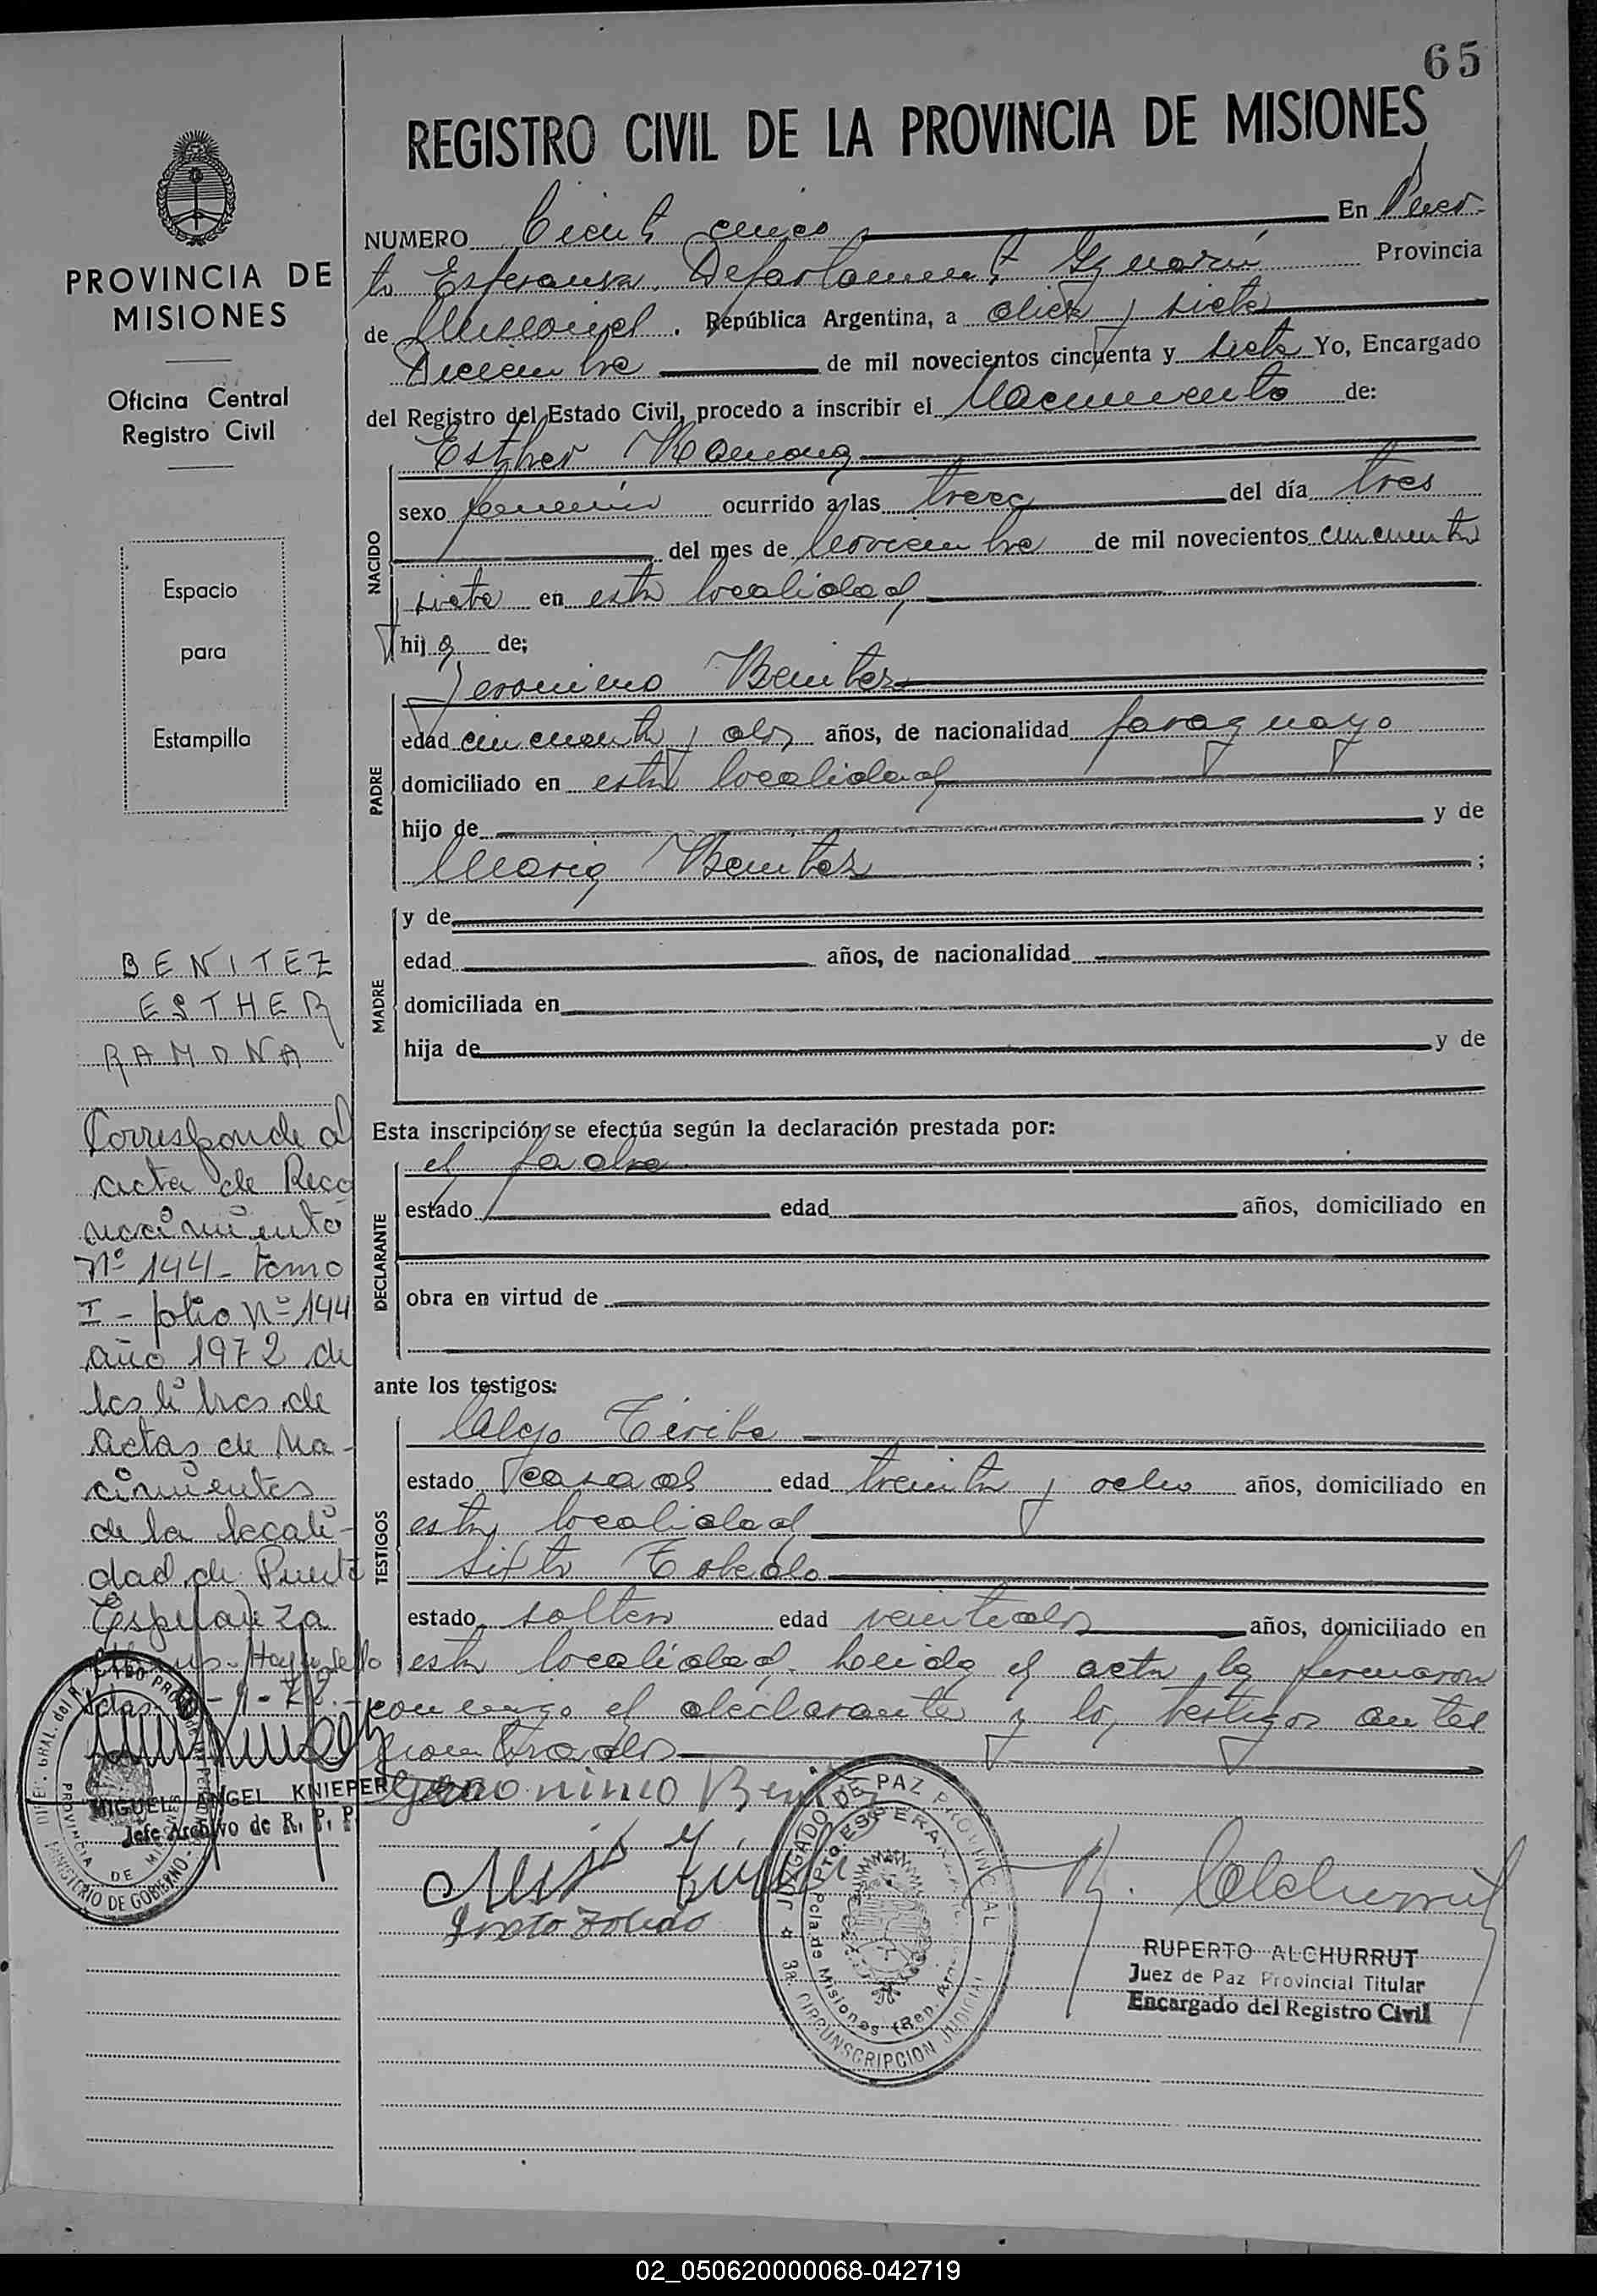 65
REGISTRO CIVIL DE LA PROVINCIA DE MISIONES
PROVINCIA DE
MISIONES
Oficina Central
Registro Civil
Espacio
para
Estampilla
BENITEZ
ESTHER
RAMONA
Corresponde al
acta de Reco
nocimiento
Nº 144 - tomo
I - folio Nº 144
año 1972 de
los libros de
actas de Na-
cimientos
de la locali-
dad de Puerto
Esperanza
MIGUEL ANGEL KNIEPER
Jefe Archivo de R. P. P.
NUMERO Ciento cinco En Puer-
to Esperanza, Departamento Iguazú Provincia
de Misiones. República Argentina, a diez y siete
Diciembre de mil novecientos cincuenta y siete Yo, Encargado
del Registro del Estado Civil, procedo a inscribir el Nacimiento de:
NACIDO
Esther Ramona
sexo femenino ocurrido a las trece del día tres
del mes de Noviembre de mil novecientos cincuenta
y siete en esta localidad
hija de;
PADRE
Jeronimo Benitez
edad cincuenta y dos años, de nacionalidad paraguayo
domiciliado en esta localidad
hijo de y de
Maria Benitez ;
MADRE
y de
edad años, de nacionalidad
domiciliada en
hija de y de
Esta inscripción se efectúa según la declaración prestada por:
DECLARANTE
el padre
estado edad años, domiciliado en
obra en virtud de
ante los testigos:
TESTIGOS
Alejo
estado casado edad treinta y ocho años, domiciliado en
esta localidad
Sixto Toledo
estado soltero edad veintidos años, domiciliado en
esta localidad. Leida el acta la firmaron
conmigo el declarante y los testigos antes
nombrados
Geronimo Benitez
Sixto Toledo
JUZGADO DE PAZ PROVINCIAL
PTO. ESPERANZA
Pcia de Misiones (Rep. Arg.
3a. CIRCUNSCRIPCION JUDICIAL
R. Alchurrut
RUPERTO ALCHURRUT
Juez de Paz Provincial Titular
Encargado del Registro Civil
PROVINCIA DE MISIONES
MINISTERIO DE GOBIERNO
02_050620000068-042719